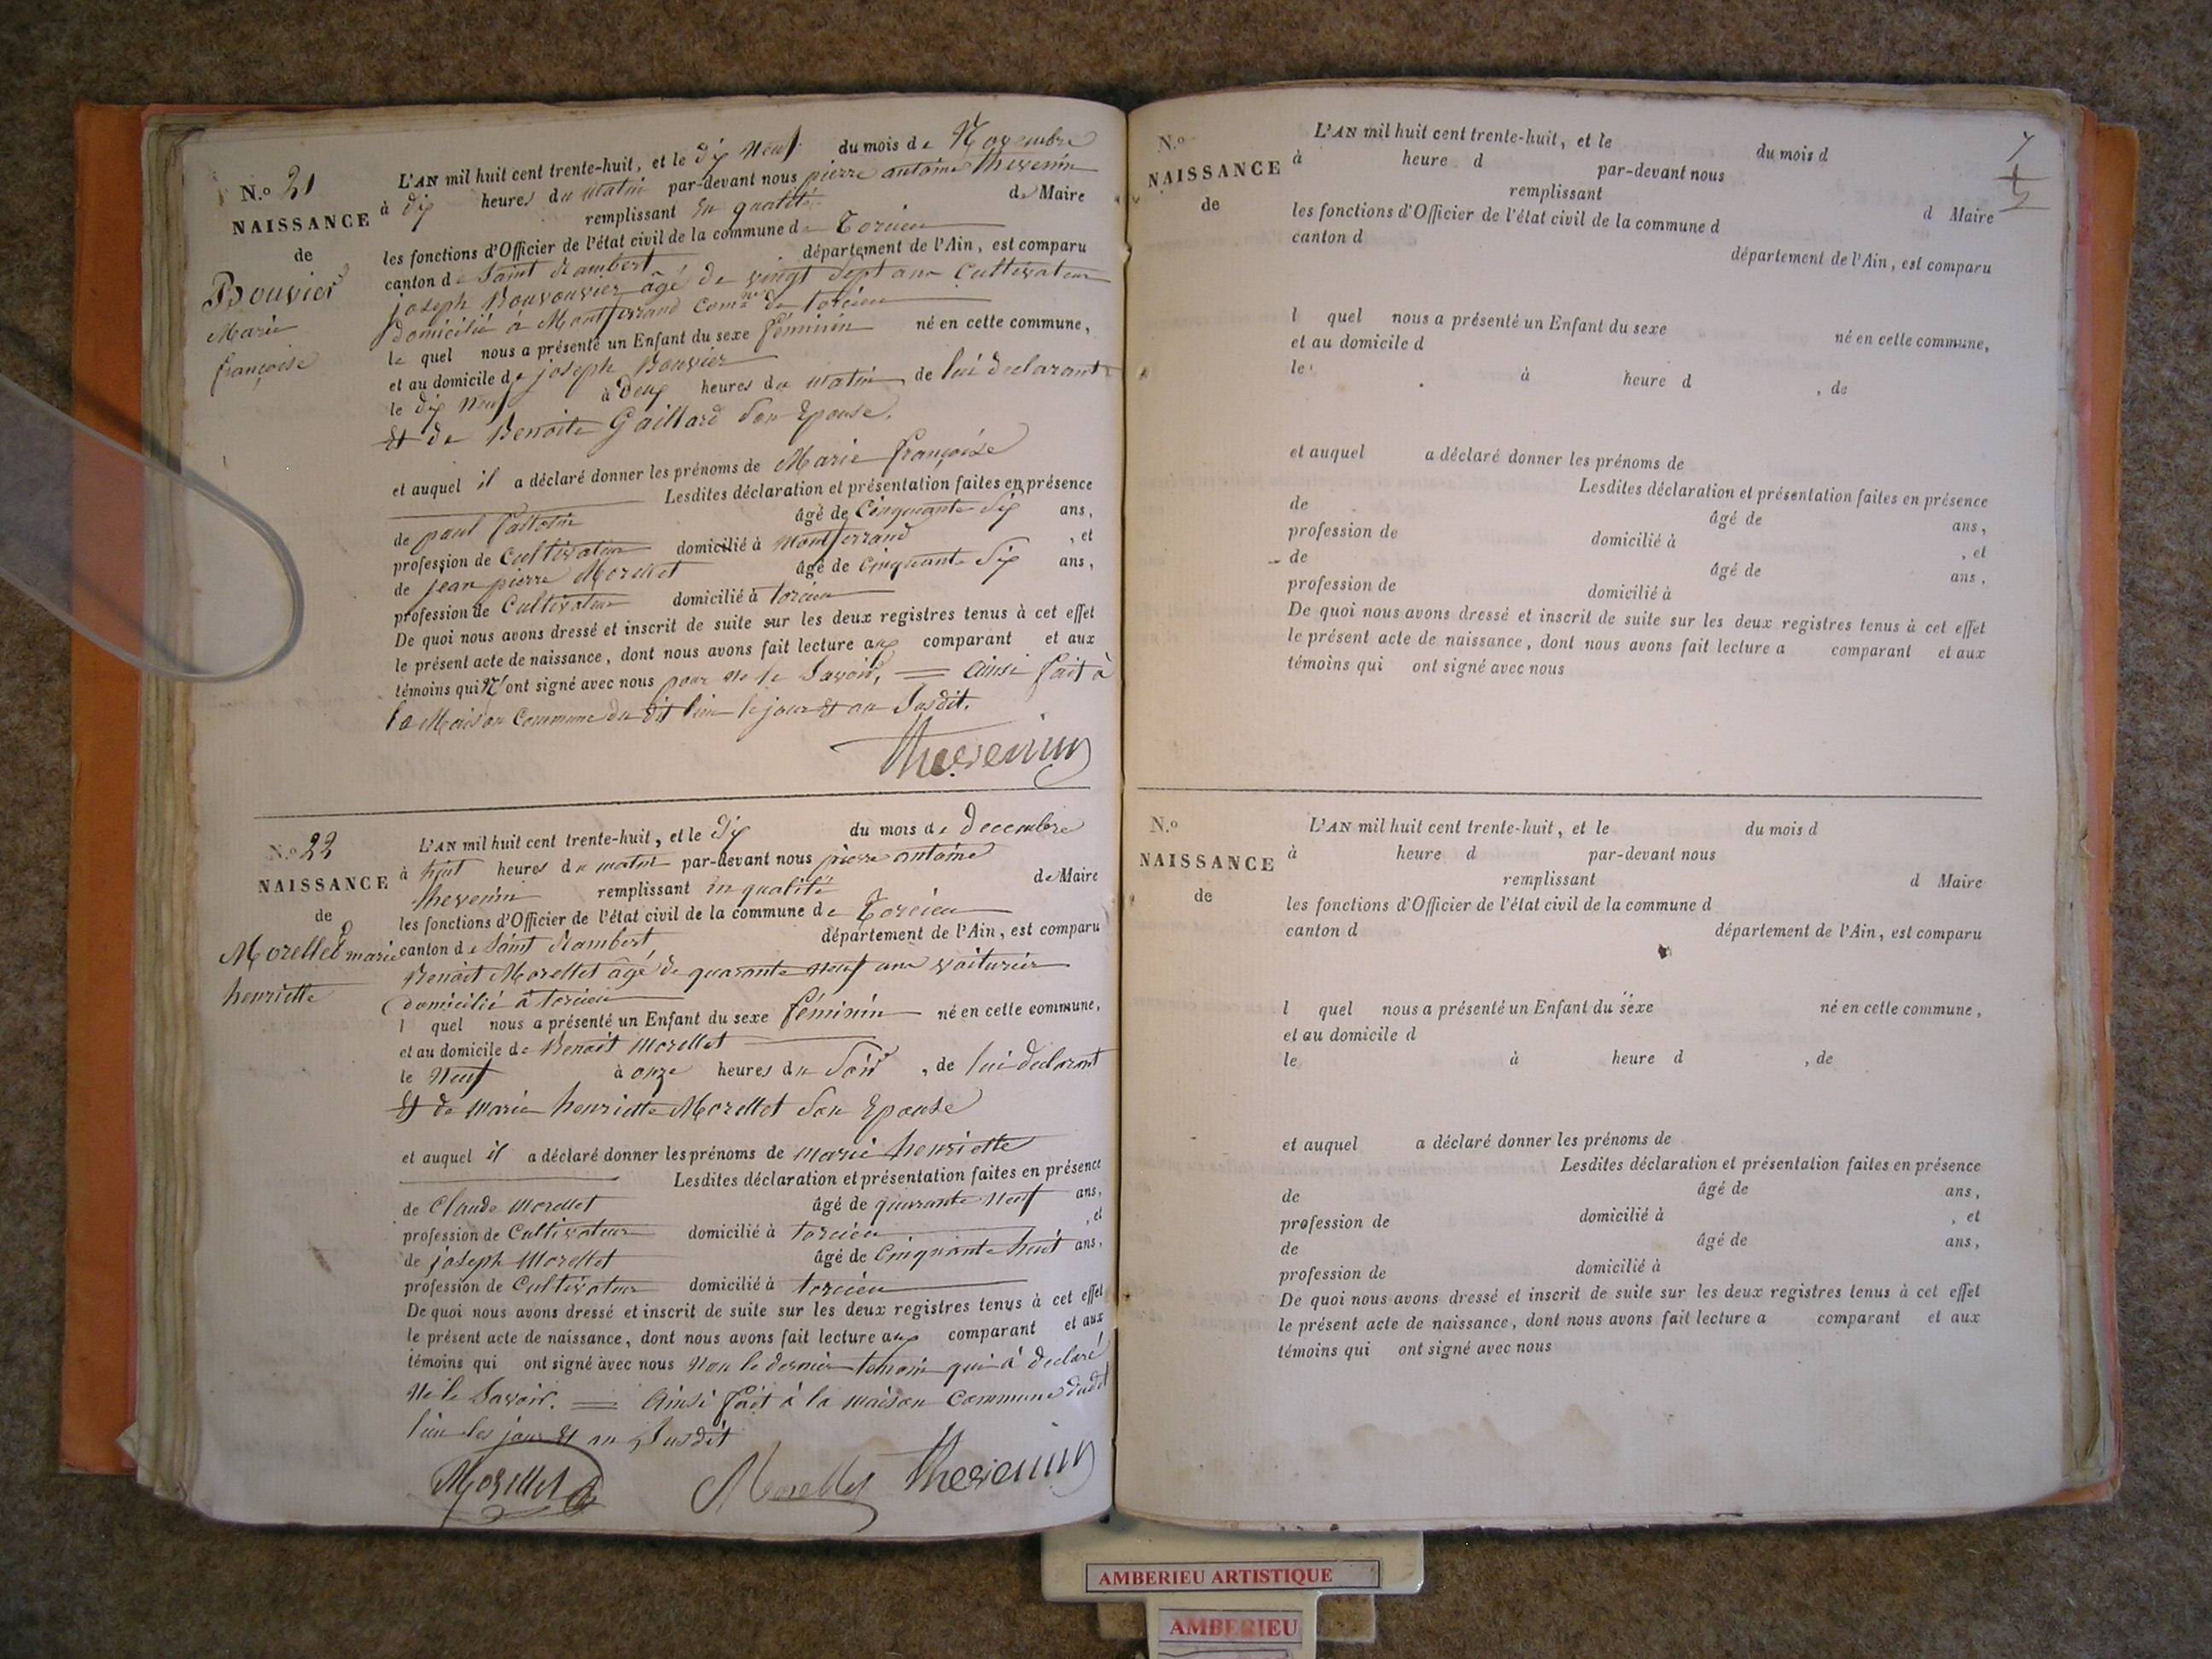 N.o 21
NAISSANCE
de
Bouvier
Marie
françoise
L'AN mil huit cent trente-huit, et le dix neuf du mois de Novembre
à dix heures du matin par-devant nous pierre antoine thevenin
remplissant en qualité de Maire
les fonctions d'Officier de l'état civil de la commune de Torcieu
canton de Saint Rambert département de l'Ain, est comparu
joseph Bouvouvier âgé de vingt sept ans Cultivateur
domicilié à Montferrand comne de torcieu
le quel nous a présenté un Enfant du sexe féminin né en cette commune,
et au domicile de joseph Bouvier
le dix neuf à deux heures du matin de lui declarant
Et de Benoite Gaillard Son Epouse.
et auquel il a déclaré donner les prénoms de Marie françoise
Lesdites déclaration et présentation faites en présence
de paul âgé de Cinquante Six ans,
profession de Cultivateur domicilié à Montferrand , et
de jean pierre Morellet âgé de Cinquante Six ans,
profession de Cultivateur domicilié à torcieu
De quoi nous avons dressé et inscrit de suite sur les deux registres tenus à cet effet
le présent acte de naissance, dont nous avons fait lecture aux comparant et aux
témoins qui N'ont signé avec nous pour ne le Savoir, = ainsi fait à
la Maison Commune du dit lieu le jour et an Susdit.
thevenin
N.o 22
NAISSANCE
de
Morellet marie
henriette
L'AN mil huit cent trente-huit, et le dix du mois de decembre
à huit heures du matin par-devant nous pierre antoine
thevenin remplissant en qualité de Maire
les fonctions d'Officier de l'état civil de la commune de Torcieu
canton de Saint Rambert département de l'Ain, est comparu
Benoit Morellet âgé de quarante neuf ans voiturier
domicilié à torcieu
l quel nous a présenté un Enfant du sexe féminin né en cette commune,
et au domicile de Benoit Morellet
le Neuf à onze heures du Soir , de lui declarant
Et de Marie henriette Morellet Son Epouse
et auquel il a déclaré donner les prénoms de marie henriette
Lesdites déclaration et présentation faites en présence
de Claude Morellet âgé de quarante neuf ans,
profession de Cultivateur domicilié à torcieu , et
de joseph Morellet âgé de Cinquante huit ans,
profession de Cultivateur domicilié à torcieu
De quoi nous avons dressé et inscrit de suite sur les deux registres tenus à cet effet
le présent acte de naissance, dont nous avons fait lecture aux comparant et aux
témoins qui ont signé avec nous Non le dernier temoin qui à declaré
Ne le Savoir. = Ainsi fait à la maison Commune dudit
lieu les jour Et an Susdit
Morellet Morellet thevenin
N.o
NAISSANCE
de
L'AN mil huit cent trente-huit, et le du mois d
à heure d par-devant nous
remplissant d Maire
les fonctions d'Officier de l'état civil de la commune d
canton d département de l'Ain, est comparu
l quel nous a présenté un Enfant du sexe né en cette commune,
et au domicile d
le à heure d , de
et auquel a déclaré donner les prénoms de
Lesdites déclaration et présentation faites en présence
de âgé de ans,
profession de domicilié à , et
de âgé de ans,
profession de domicilié à
De quoi nous avons dressé et inscrit de suite sur les deux registres tenus à cet effet
le présent acte de naissance, dont nous avons fait lecture a comparant et aux
témoins qui ont signé avec nous
N.o
NAISSANCE
de
L'AN mil huit cent trente-huit, et le du mois d
à heure d par-devant nous
remplissant d Maire
les fonctions d'Officier de l'état civil de la commune d
canton d département de l'Ain, est comparu
l quel nous a présenté un Enfant du sexe né en cette commune,
et au domicile d
le à heure d , de
et auquel a déclaré donner les prénoms de
Lesdites déclaration et présentation faites en présence
de âgé de ans,
profession de domicilié à , et
de âgé de ans,
profession de domicilié à
De quoi nous avons dressé et inscrit de suite sur les deux registres tenus à cet effet
le présent acte de naissance, dont nous avons fait lecture a comparant et aux
témoins qui ont signé avec nous
AMBERIEU ARTISTIQUE
AMBERIEU